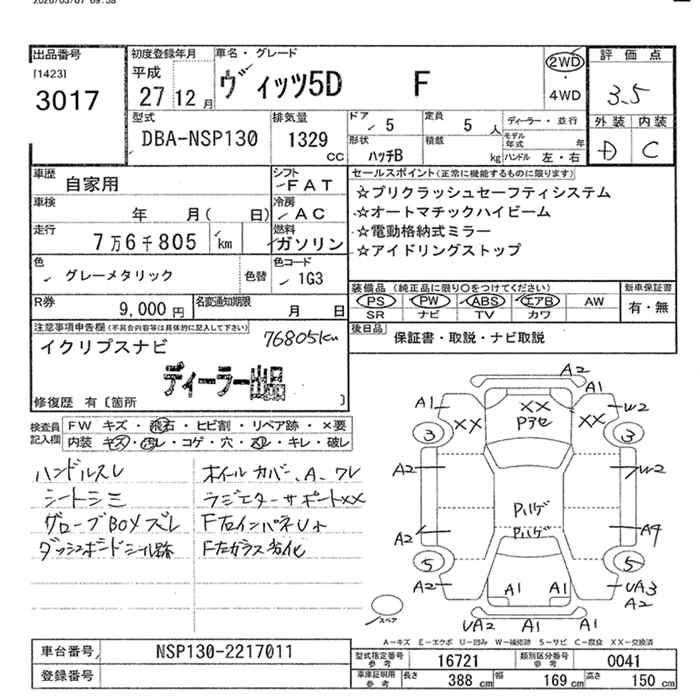 2026/03/07 09:58
出品番号 [1423] 3017
初度登録年月 平成 27 12月
車名・グレード ヴィッツ5D F
2WD ・ 4WD
評価点 3.5
外装 D 内装 C
型式 DBA-NSP130
排気量 1329 CC
ドア 5 定員 5 人
形状 ハッチB 積載 kg
ディーラー・並行
モデル年式 年
ハンドル 左・右
車歴 自家用
シフト FAT
車検 年 月( 日)
冷房 AC
走行 7万6千805 km
燃料 ガソリン
色 グレーメタリック 色替
色コード 1G3
R券 9,000円
名変通知期限 月 日
セールスポイント(正常に機能するものに限ります)
☆プリクラッシュセーフティシステム
☆オートマチックハイビーム
☆電動格納式ミラー
☆アイドリングストップ
装備品(純正品に限り○をつけてください)
PS PW ABS エアB AW
SR ナビ TV カワ
新車保証書 有・無
後日品 保証書・取説・ナビ取説
注意事項申告欄(不具合内容等は具体的に記入して下さい)
イクリプスナビ
76805km
ディーラー出品
修復歴 有 〔箇所 〕
検査員記入欄
FW キズ・飛石・ヒビ割・リペア跡・×要
内装 キズ・汚レ・コゲ・穴・スレ・キレ・破レ
ハンドルスレ
シートシミ
グローブBOXズレ
ダッシュボードシール跡
ホイルカバー、A、ワレ
ラジエターサポートXX
F左ガラス劣化
A2
A1 A1
A1 XX XX XX W2
Pアセ
3 3
A2 W2
Pハゲ
Pハゲ
A2 A4
5 5
A2 A1 A1 UA3
A2
UA2 A1 A1
スペア
A-キズ E-エクボ U-凹み W-補修跡 S-サビ C-腐食 XX-交換済
車台番号 NSP130-2217011
登録番号
型式指定番号 参考 16721
類別区分番号 参考 0041
車庫証明用 参考 長さ 388 cm 幅 169 cm 高さ 150 cm